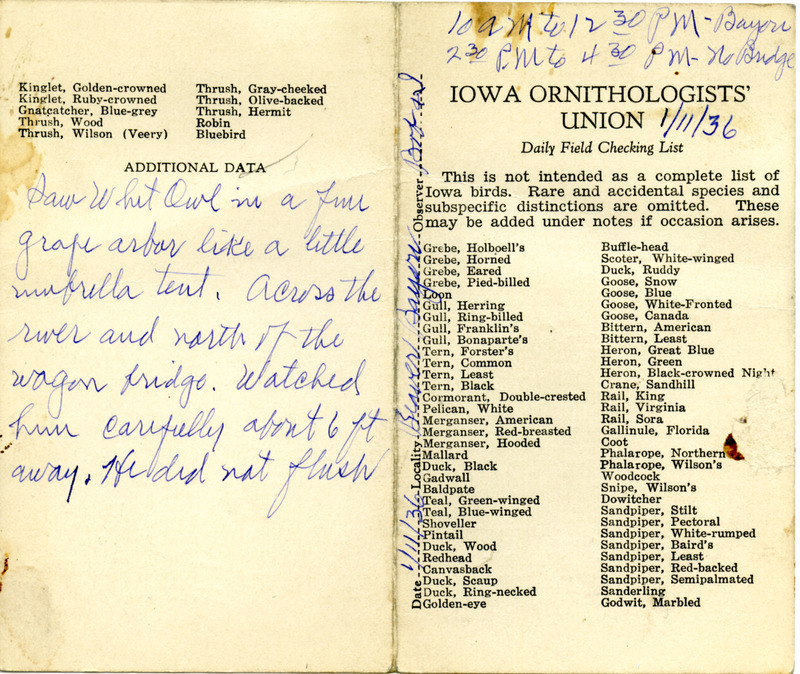 Kinglet, Golden-crowned
Kinglet, Ruby-crowned
Gnatcatcher, Blue-grey
Thrush, Wood
Thrush, Wilson (Veery)
Thrush, Gray-cheeked
Thrush, Olive-backed
Thrush, Hermit
Robin
Bluebird
ADDITIONAL DATA
Saw Whet Owl in a
grape arbor like a little
umbrella tent. Across the
river and north of the
wagon bridge. Watched
him carefully about 6 ft
away. He did not flush
10 am to 12 30 PM - Bayou
2 30 PM to 4 30 PM - No Bridge
IOWA ORNITHOLOGISTS'
UNION 1/11/36
Daily Field Checking List
This is not intended as a complete list of
Iowa birds. Rare and accidental species and
subspecific distinctions are omitted. These
may be added under notes if occasion arises.
Date 1/11/36 Locality Bayou Observer
Grebe, Holboell's
Grebe, Horned
Grebe, Eared
Grebe, Pied-billed
Loon
Gull, Herring
Gull, Ring-billed
Gull, Franklin's
Gull, Bonaparte's
Tern, Forster's
Tern, Common
Tern, Least
Tern, Black
Cormorant, Double-crested
Pelican, White
Merganser, American
Merganser, Red-breasted
Merganser, Hooded
Mallard
Duck, Black
Gadwall
Baldpate
Teal, Green-winged
Teal, Blue-winged
Shoveller
Pintail
Duck, Wood
Redhead
Canvasback
Duck, Scaup
Duck, Ring-necked
Golden-eye
Buffle-head
Scoter, White-winged
Duck, Ruddy
Goose, Snow
Goose, Blue
Goose, White-Fronted
Goose, Canada
Bittern, American
Bittern, Least
Heron, Great Blue
Heron, Green
Heron, Black-crowned Night
Crane, Sandhill
Rail, King
Rail, Virginia
Rail, Sora
Gallinule, Florida
Coot
Phalarope, Northern
Phalarope, Wilson's
Woodcock
Snipe, Wilson's
Dowitcher
Sandpiper, Stilt
Sandpiper, Pectoral
Sandpiper, White-rumped
Sandpiper, Baird's
Sandpiper, Least
Sandpiper, Red-backed
Sandpiper, Semipalmated
Sanderling
Godwit, Marbled